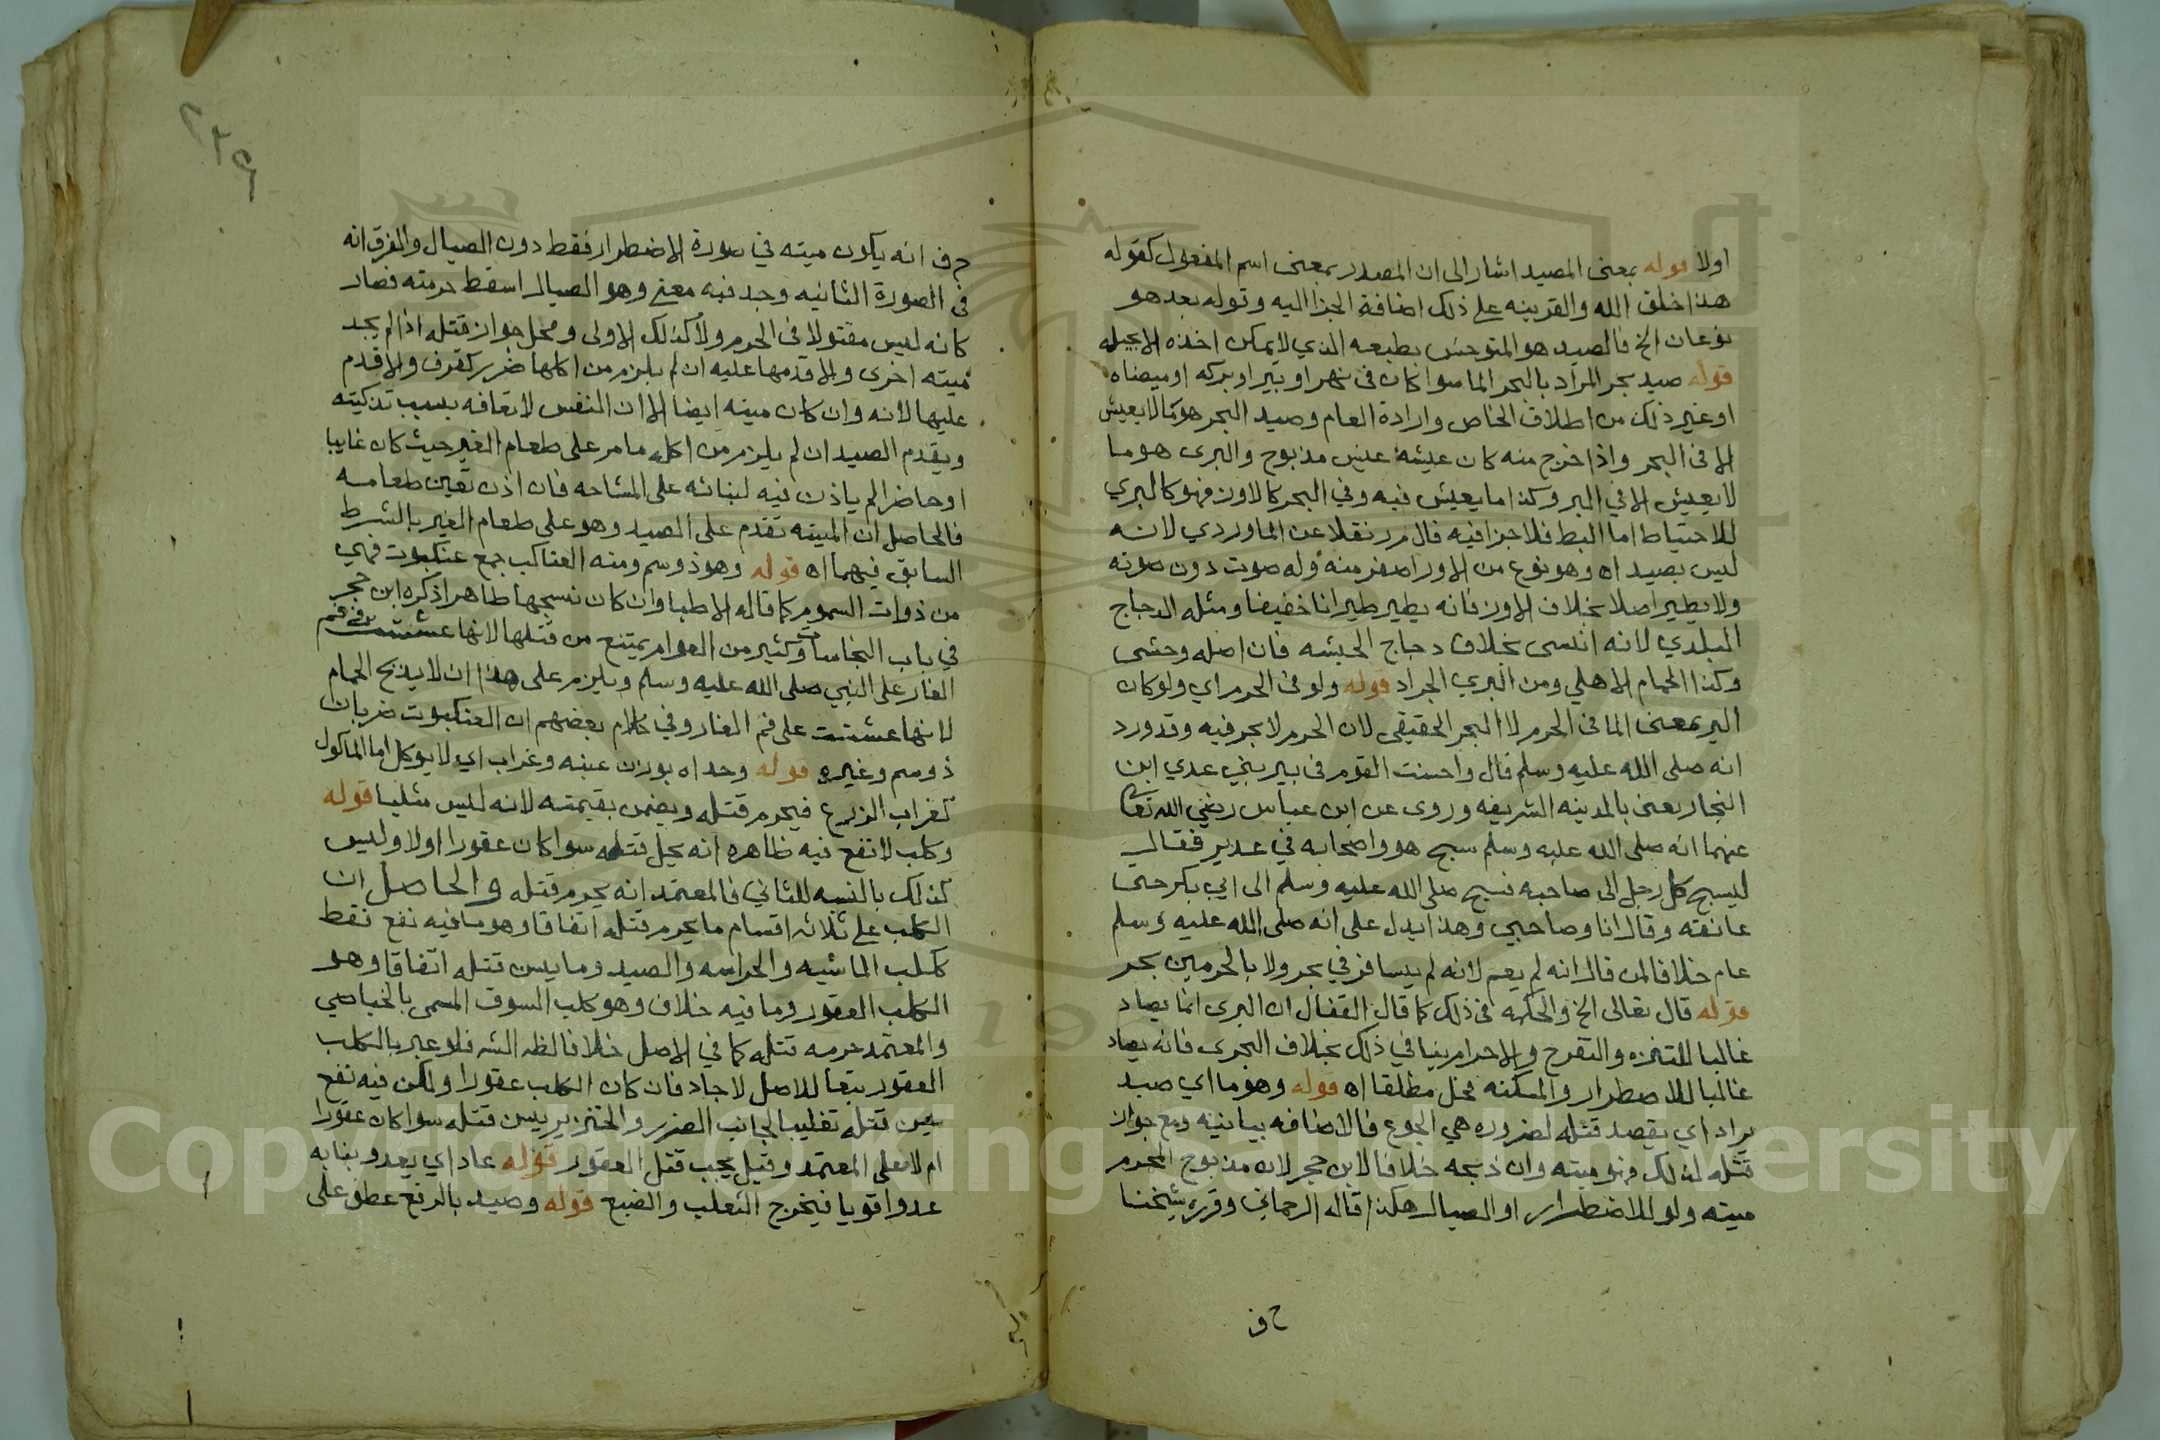 اولا قوله بمعنى المصيد اشار الى ان المصدر بمعنى اسم المفعول كقوله
هذا خلق الله والقرينه على ذلك اضافة الجزا اليه وقوله بعد هو
نوعان الخ فالصيد هو المتوحش بطبعه الذي لا يمكن اخذه الا بحيله
قوله صيد بحر المراد بالبحر الما سوا كان في نهر او بير او بركه او ميضاه
او غير ذلك من اطلاق الخاص وارادة العام وصيد البحر هو ما لا يعيش
الا في البحر واذا خرج منه كان عيشه عيش مذبوح والبرى هو ما
لا يعيش الا في البر وكذا ما يعيش فيه وفي البحر كالاوز فهو كالبري
للاحتياط اما البط فلا جزا فيه قال م ر نقلا عن الماوردي لانه
ليس بصيد اه وهو نوع من الاوز اصغر منه وله صوت دون صوته
ولا يطير اصلا بخلاف الاوز فانه يطير طيرانا خفيفا ومثله الدجاج
البلدي لانه انسى بخلاف دجاج الحبشه فان اصله وحشى
وكذا الحمام الاهلي ومن البري الجراد قوله ولو في الحرم اي ولو كان
البر بمعنى الما في الحرم لا البحر الحقيقى لان الحرم لا بحر فيه وقد ورد
انه صلى الله عليه وسلم قال واحسنت القوم في بير بني عدي ابن
النجار يعنى بالمدينه الشريفه وروى عن ابن عباس رضي الله تعا
عنهما انه صلى الله عليه وسلم سبح هو واصحابه في غدير فقال
ليسبح كل رجل الى صاحبه فسبح صلى الله عليه وسلم الى ابي بكر حتى
عانقه وقال انا وصاحبي وهذا يدل على انه صلى الله عليه وسلم
عام خلافا لمن قال انه لم يعم لانه لم يسافر في بحر ولا بالحرمين بحر
قوله قال تعالى الخ والحكمه في ذلك كما قال القفال ان البرى انما يصاد
غالبا للتنزه والتفرج والاحرام ينافي ذلك بخلاف البحرى فانه يصاد
غالبا للاضطرار والمسكنه فحل مطلقا اه قوله وهو ما اي صيد
يراد اي يقصد قتله لضروره هي الجوع فالاضافه بيانيه ومع جواز
قتله لذلك هو ميته وان ذبحه خلافا لابن حجر لان مذبوح المحرم
ميته ولو للاضطرار او الصيال هكذا قاله الرحماني وقرره شيخنا
ح ف
ح ف انه يكون ميته في صورة الاضطرار فقط دون الصيال والفرق انه
في الصورة الثانيه وجد فيه معنى وهو الصيال اسقط حرمته فصار
كانه ليس مقتولا في الحرم ولا كذلك الاولى ومحل جواز قتله اذا لم يجد
ميته اخرى والا قدمها عليه ان لم يلزم من اكلها ضرر كقرف والا قدم
عليها لانه وان كان ميته ايضا الا ان النفس لا تعافه بسبب تذكيته
ويقدم الصيد ان لم يلزم من اكله ما مر على طعام الغير حيث كان غايبا
او حاضرا لم ياذن فيه لبنائه على المشاحه فان اذن تعين طعامه
فالحاصل ان الميته تقدم على الصيد وهو على طعام الغير بالشرط
السابق فيهما اه قوله وهو ذو سم ومنه العناكب جمع عنكبوت فهي
من ذوات السموم كما قاله الاطبا وان كان نسجها طاهرا ذكره ابن حجر
في باب النجاسات وكثير من العوام يمتنع من قتلها لانها عششت في فم
الغار على النبي صلى الله عليه وسلم ويلزم على هذا ان لا يذبح الحمام
لانها عششت على فم الغار وفي كلام بعضهم ان العنكبوت ضربان
ذو سم وغيره قوله وحداه بوزن عنبه وغراب اي لا يوكل اما الماكول
كغراب الزرع فيحرم قتله ويضمن بقيمته لانه ليس مثليا قوله
وكلب لا نفع فيه ظاهره انه يحل قتله سوا كان عقورا اولا وليس
كذلك بالنسبه للثاني فالمعتمد انه يحرم قتله والحاصل ان
الكلب على ثلاثه اقسام ما يحرم قتله اتفاقا وهو ما فيه نفع فقط
ككلب الماشيه والحراسه والصيد وما يسن قتله اتفاقا وهو
الكلب العقور وما فيه خلاف وهو كلب السوق المسمى بالخباصي
والمعتمد حرمه قتله كما في الاصل خلافا لظ الش فلو عبر بالكلب
العقور تبعا للاصل لاجاد فان كان الكلب عقورا ولكن فيه نفع
سن قتله تغليبا لجانب الضرر والخنزير يسن قتله سوا كان عقورا
ام لا على المعتمد وقيل يجب قتل العقور قوله عاد اي يعدو بنابه
عدوا قويا فيخرج الثعلب والضبع قوله وصيد بالرفع عطف على
Copyright © King Saud University